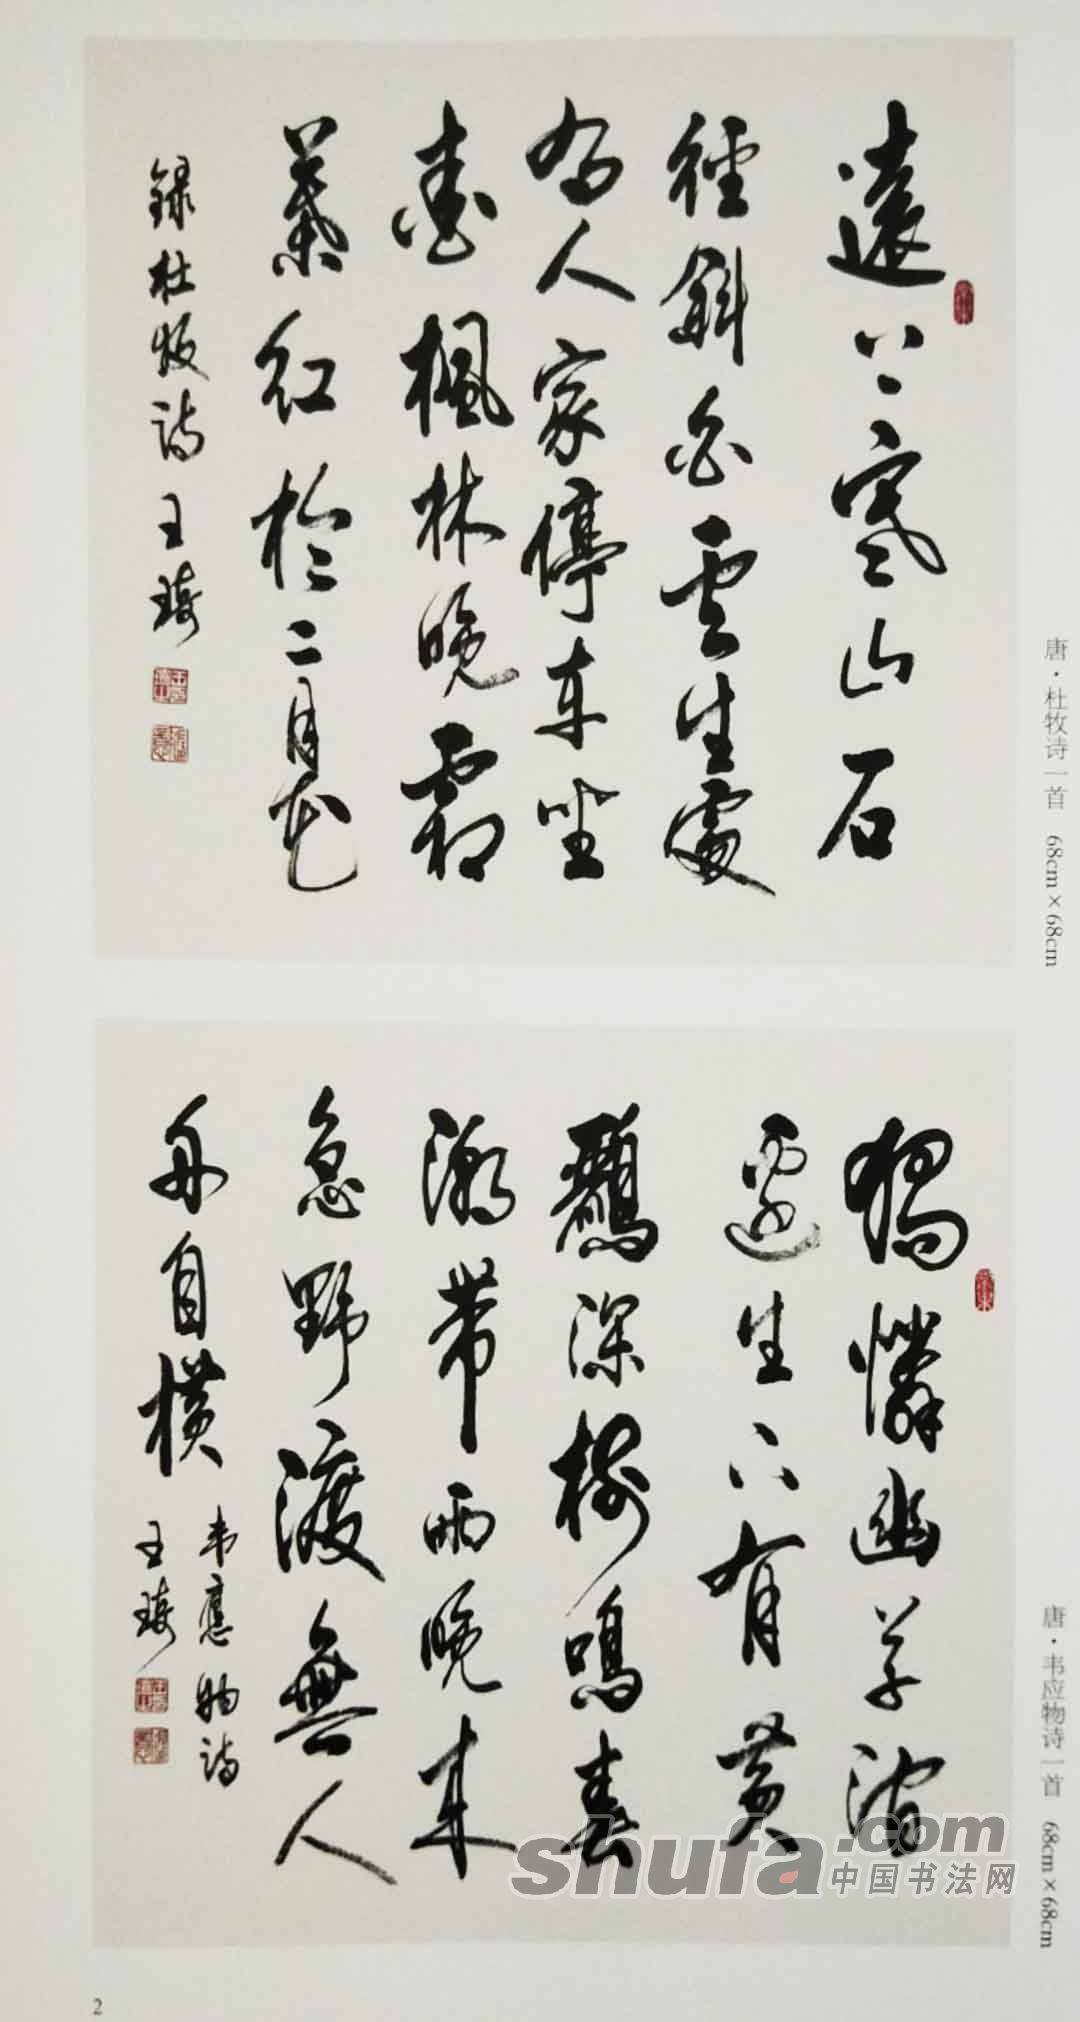 遠上寒山石
徑斜白雲生處
有人家停車坐
愛楓林晚霜
葉紅於二月花
録杜牧詩 王琦
唐·杜牧诗一首 68cm×68cm
獨憐幽草澗
邊生上有黄
鸝深樹鳴春
潮帶雨晚来
急野渡無人
舟自横
韦應物詩
王琦
唐·韦应物诗一首 68cm×68cm
shufa.com
中国书法网
2